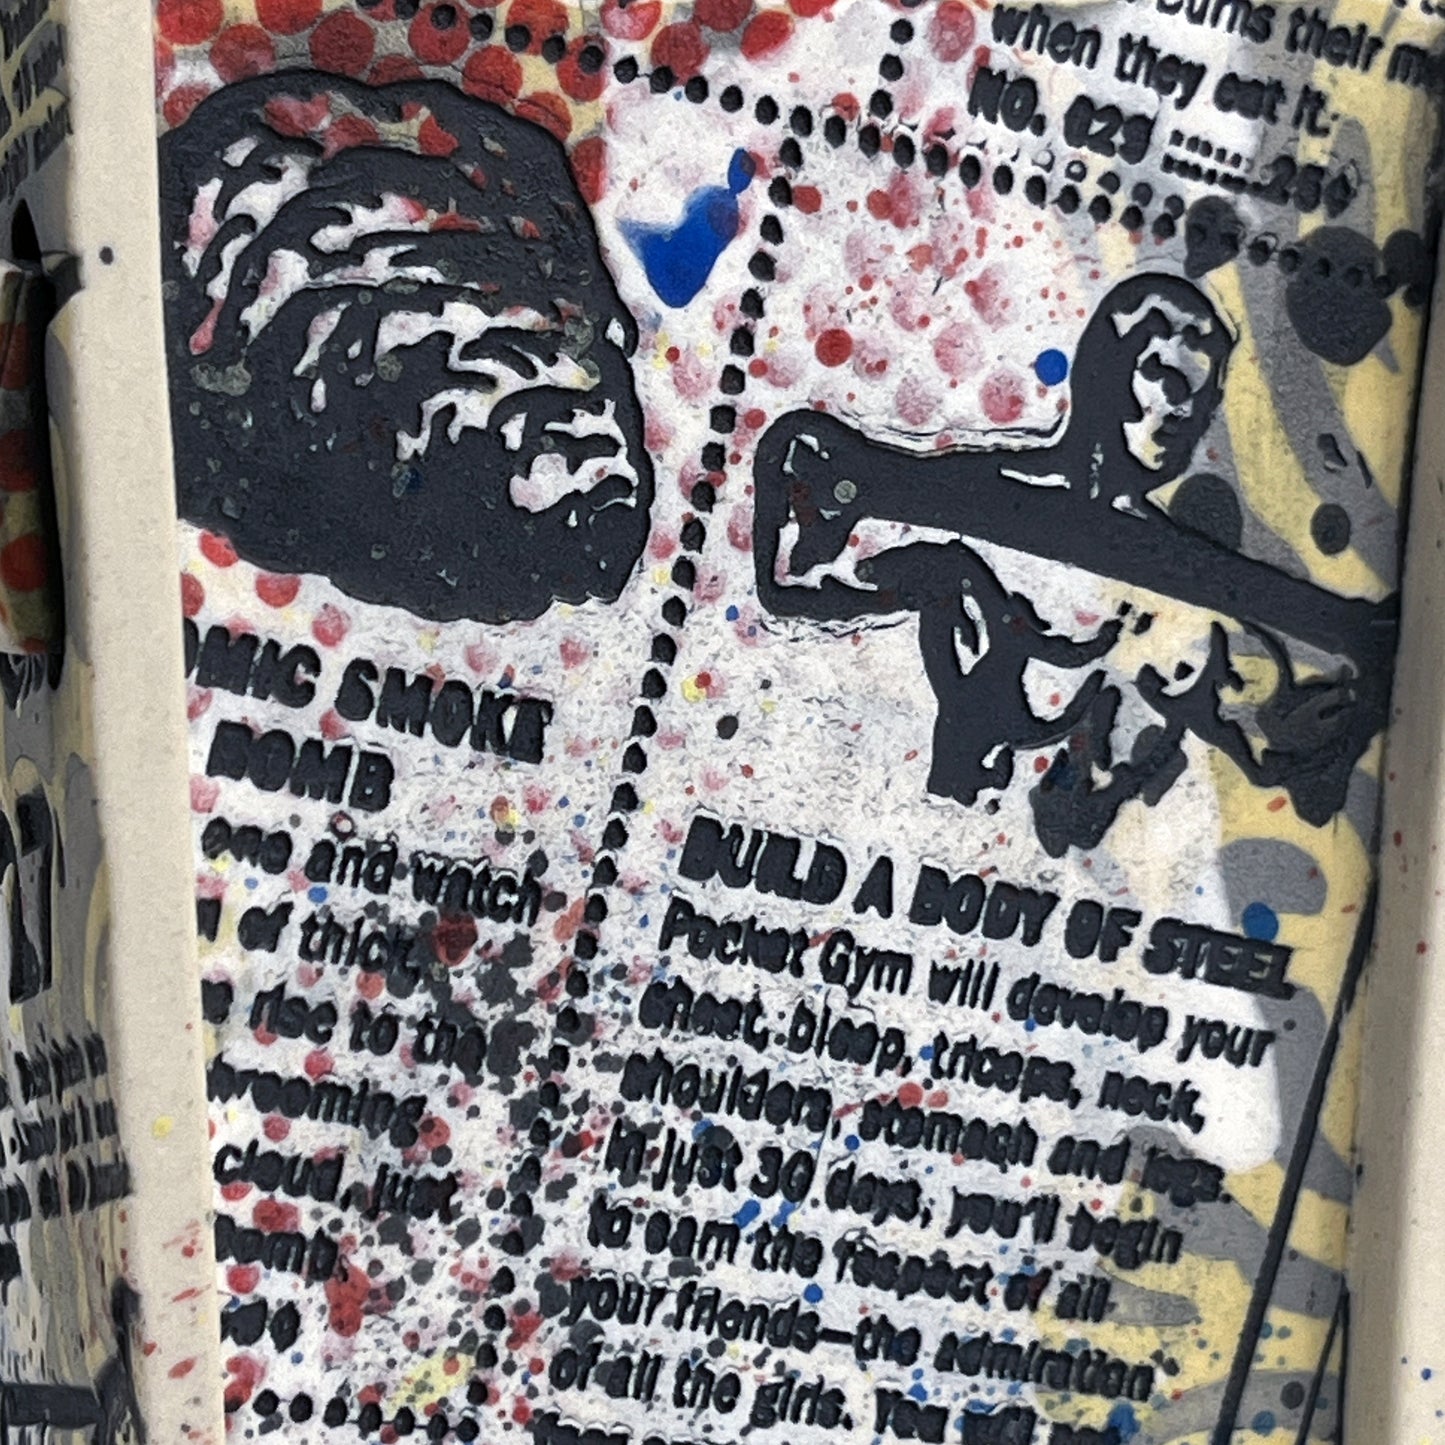 burns their
when they eat it.
NO. 029 ..........25¢
OMIC SMOKE
BOMB
one and watch
n of thick,
e rise to the
wrooming
cloud, just
bomb,
BUILD A BODY OF STEEL
Pocket Gym will develop your
chest, bicep, triceps, neck,
shoulders, stomach and legs.
In just 30 days, you'll begin
to earn the respect of all
your friends—the admiration
of all the girls. You will